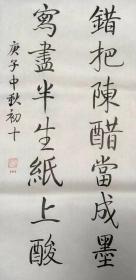 錯把陳醋當成墨
寫盡半生紙上酸
庚子中秋初十